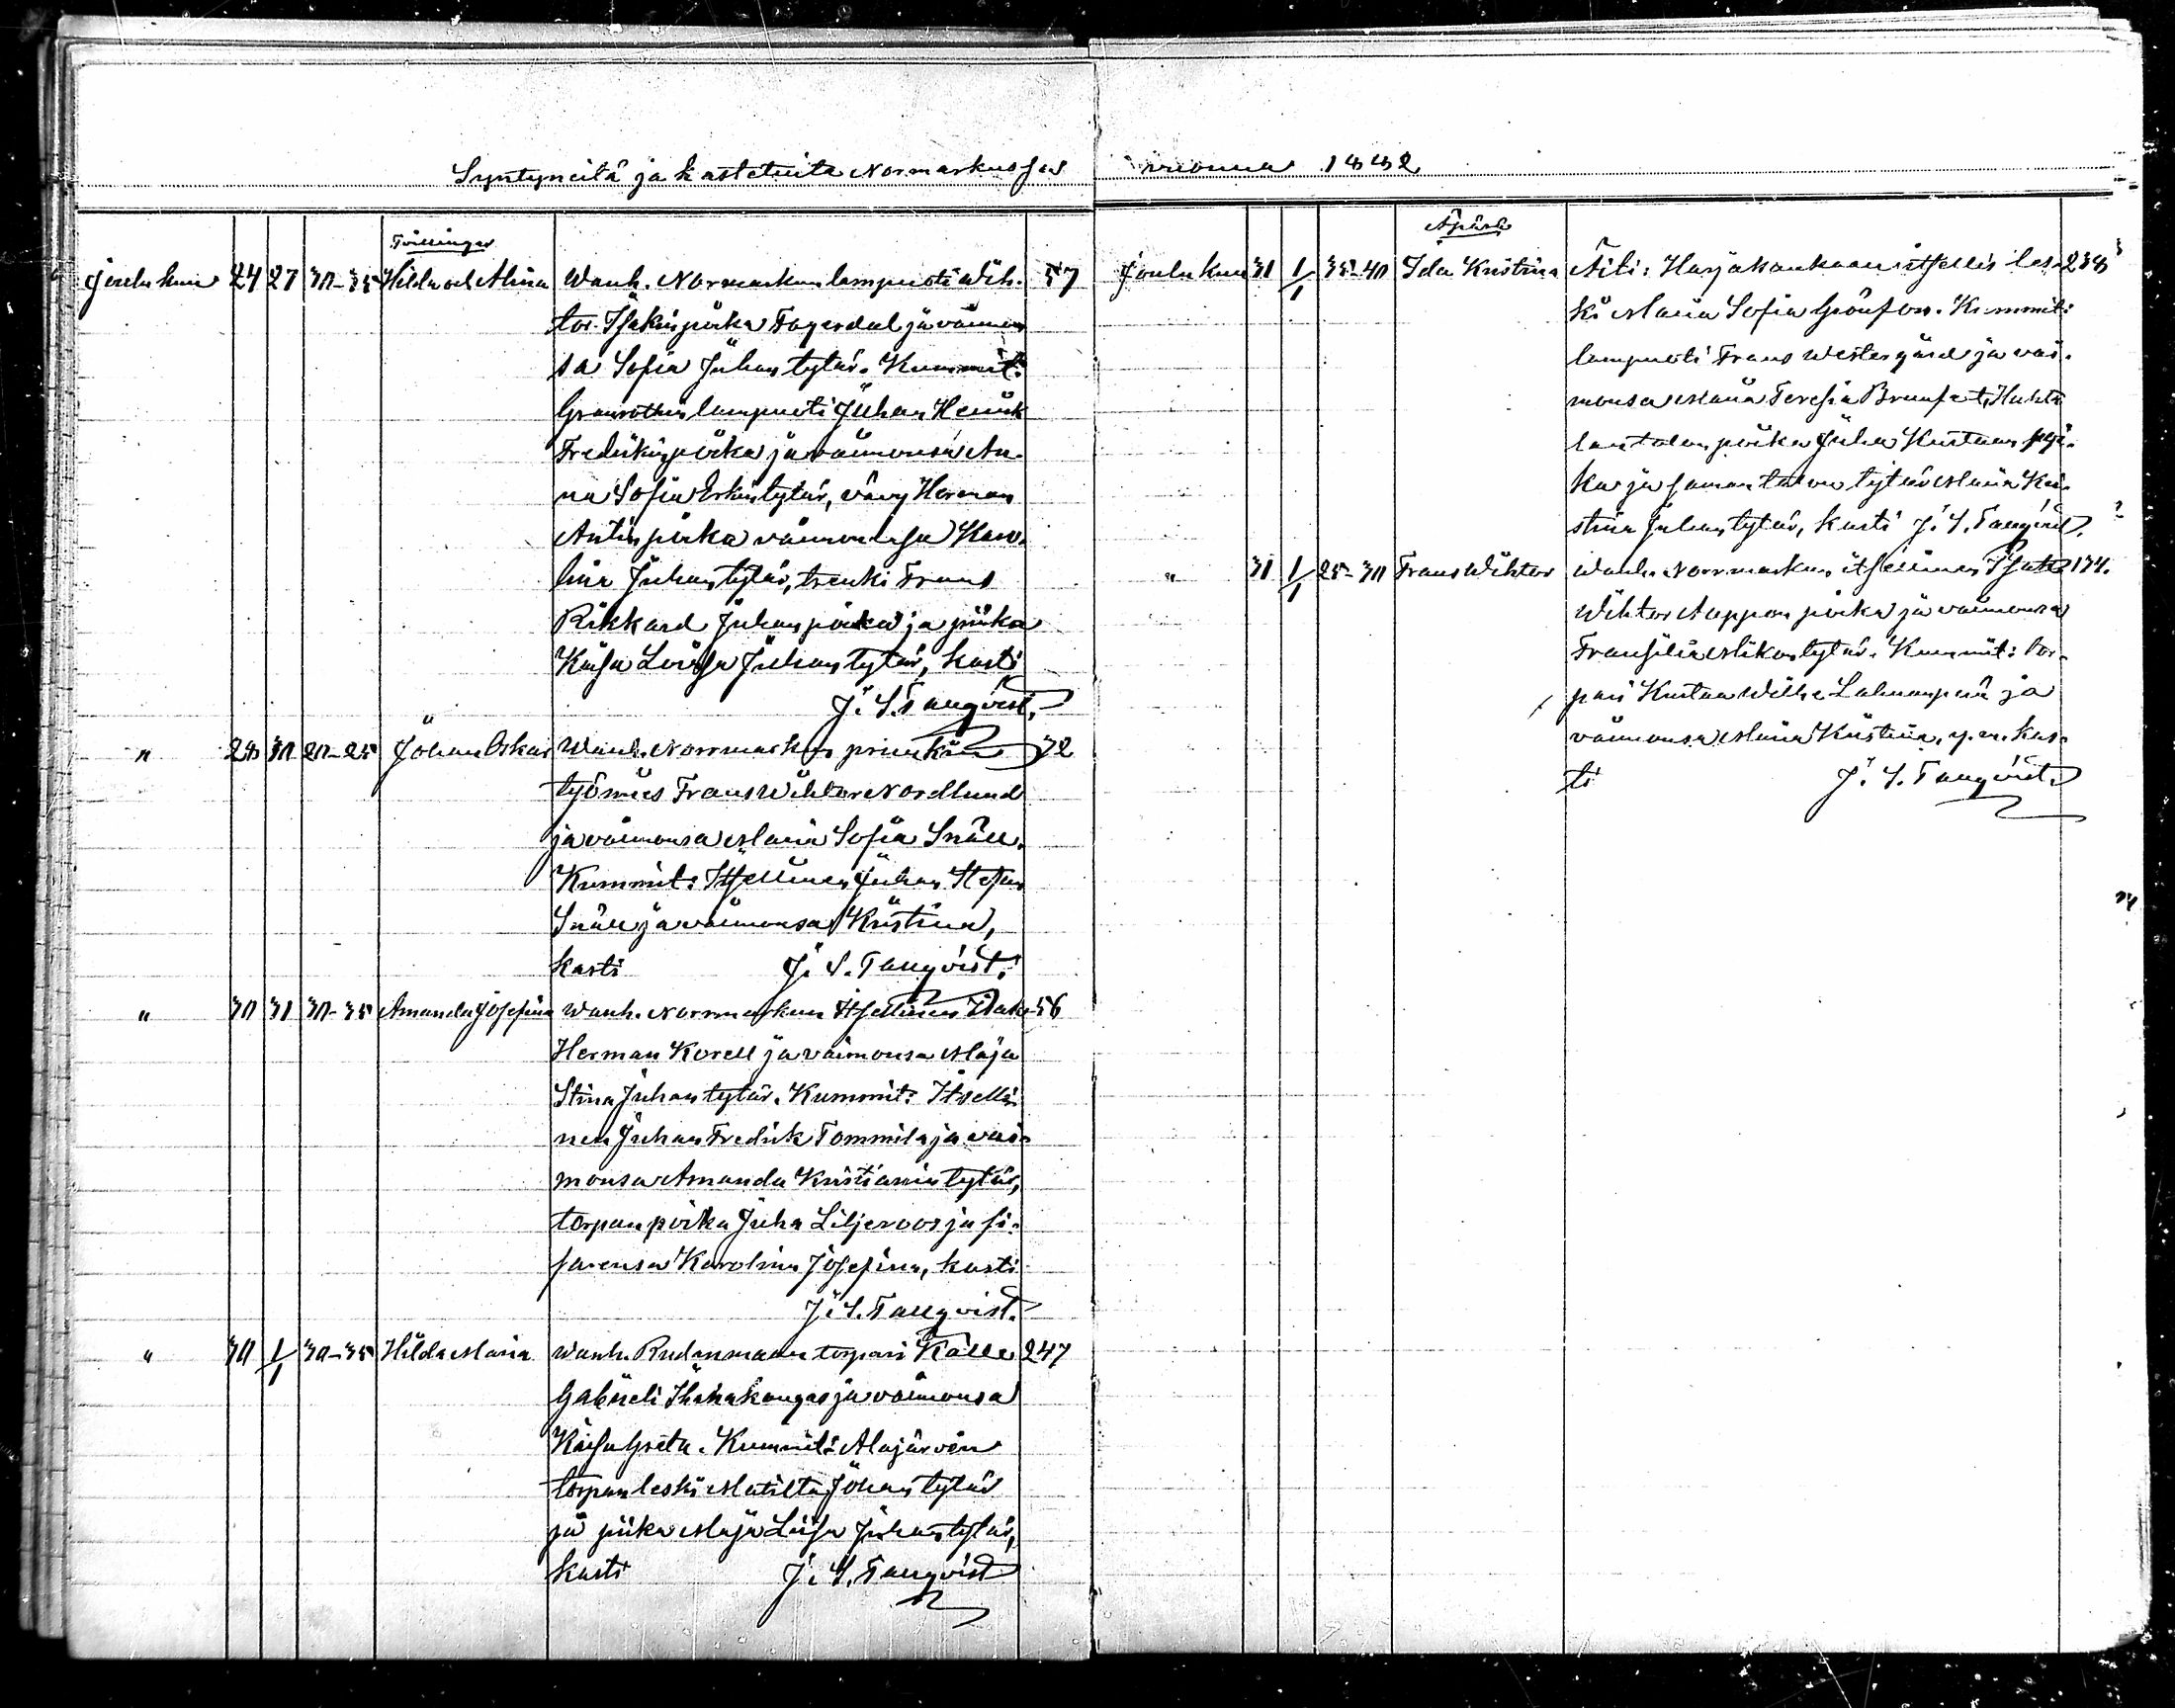 Syntyneitä ja kastetuita Normarkussa vuonna 1882
Tvillingar
Joulu kuu 24 27 30-35 Hilda och Alina Wanh. Normarkun lampuoti Wih- 57
tor Isakin poika Fagerdal ja vaimon
sa Sofia Juhan tytär. Kummit:
lampuoti Juhan Henrik
Fredrikin poika ja vaimonsa An-
na Sofia Erkin tytär, vävy Herman
Antin poika vaimonsa Karo-
lina Juhan tytär, trenki Frans
Rikkard Juhan poika ja piika
Kaisa Lovisa Juhan tytär, kasti
J. S. Tanqvist.
" 28 30 20-25 Johan Oskar Wanh. Norrmarkun pruukin 72
työmies Frans Wihtor Nordlund
ja vaimonsa Maria Sofia Snäll.
Kummit: Itsellinen Juhan Stefan
Snäll ja vaimonsa Kristina,
kasti J. S. Tanqvist.
" 30 31 30-35 Amanda Josefina Wanh. Norrmarkun Itsellinen Isak 56
Herman Korell ja vaimonsa Maja
Stina Juhan tytär. Kummit: Itselli-
nen Juhan Fredrik Tommila ja vai-
monsa Amanda Kristianin tytär,
torpan poika Juha Liljeroos ja si-
sarensa Karolina Josefina, kasti
J. S. Tanqvist.
" 30 1/1 30-35 Hilda Maria Wanh. Rudanmaan torpari Kalle 247
Gabrieli Ihanakangas ja vaimonsa
Kaisa Greta. Kummit: Alajärven
torpan leski Matilta Johan tytär
ja piika Maja Liisa Juhan tytär,
kasti J. S. Tanqvist
Äpärä
Joulu kuu 31 1/1 35-40 Ida Kristina Äiti: Harjakankaan itsellis les- 238
ki Maria Sofia Grönfors. Kummit:
lampuoti Frans Westergård ja vai-
monsa Maria Teresia
talon poika Juha Kustaan poi-
ka ja saman talon tytär Maria Kri-
stina Juhan tytär, kasti J. S. Tanqvist.
" 31 1/1 25-30 Frans Wihtor Wanh. Norrmarkun itsellinen Isak 174.
Wihtor Aappon poika ja vaimonsa
Fransilia Mikon tytär. Kummit: tor-
pari Kustaa Wilhe Lahnanpää ja
vaimonsa Maria Kristina, y.m. kas-
ti J. S. Tanqvist.